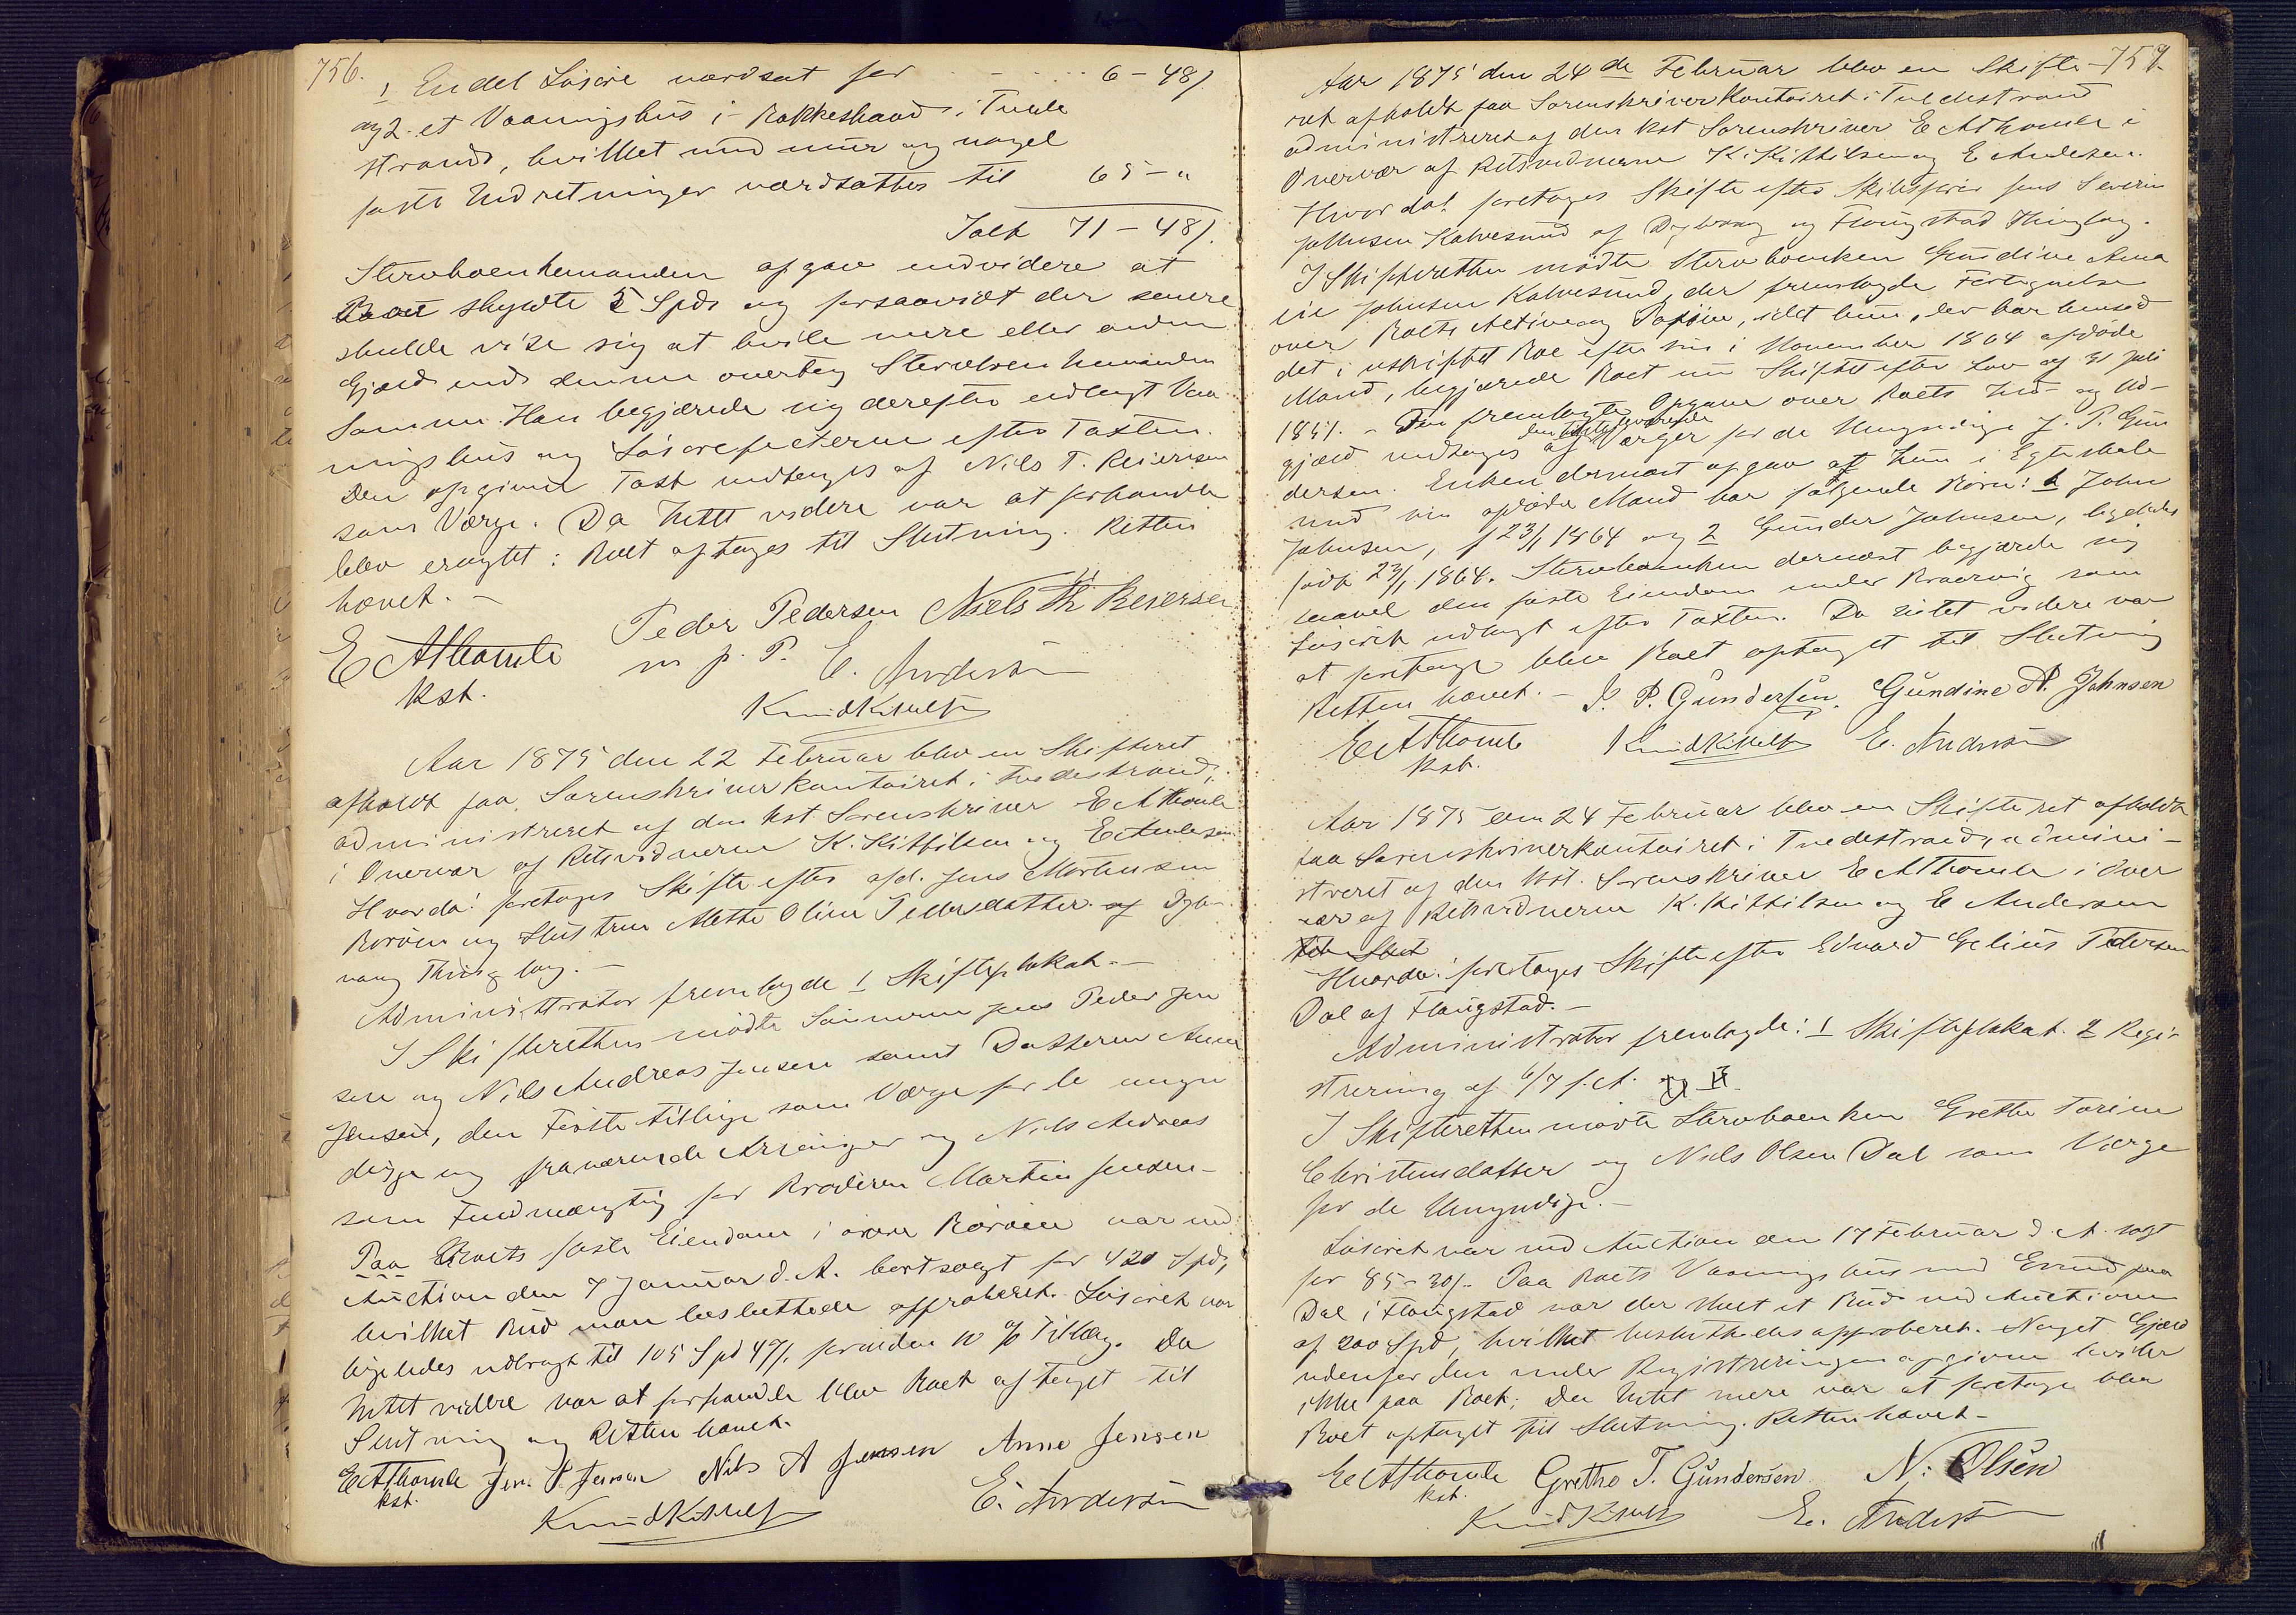 756.
1 Endel Løsøre værdsat for - - - - 6 - 48ß.
og 2. et Vaaningshus i Bakkeskaad i Tvede
strand, hvilket med muur og nagel
faste Indretninger værdsattes til 65 - "
Ialt 71 - 48ß.
Stervboenkemanden opgav endvidere at
Boet skyldte 5 Spd og forsaavidt der senere
skulde vise sig at hvile mere eller anden
Gjæld end denne overtog Stervboenkemanden
Samme. Han begjærede sig derefter udlagt Vaa
ningshus og Løsøreffecterne efter Taxten.
Den opgivne Taxt vedtoges af Niels T. Reiersen
som Værge. Da Intet videre var at forhandle
blev eragtet: Boet optages til Slutning. Retten
hævet. -
EAThomle Peder Pedersen Niels Th Reiersen
kst. m. p. P. E. Andersen
Knud Kittilsen
Aar 1875 den 22 Februar blev en Skifteret
afholdt paa Sorenskriverkontoiret i Tvedestrand,
administreret af den kst Sorenskriver EAThomle
i Overvær af Retsvidnerne K. Kittilsen og E Andersen
Hvorda: foretoges Skifte efter afd. Jens Mortensen
Borøen og Hustru Mette Oline Pedersdatter af Dyb-
vaag Thinglag. -
Administrator fremlagde 1 Skifteplakat. -
I Skifteretten mødte Sønnerne Jens Peder Jen
sen og Nils Andreas Jensen samt Datteren Anne
Jensen, den Første tillige som Værge for de umyn
dige og fraværende Arvinger og Nils Andreas
som Fuldmægtig for Broderen Martin Jensen -
Paa Boets faste Eiendom i øvre Borøen var ved
Auction den 7 Januar d. A. bortsolgt for 420 Spd,
hvilket Bud man besluttede approberet. Løsøret var
ligeledes udbragt til 105 Spd 47ß. foruden 10 % Tillæg. Da
Intet videre var at forhandle blev Boet optaget til
Slutning og Retten hævet.
EAThomle Jens P. Jensen Nils A Jensen Anne Jensen
kst.
Knud Kittilsen E. Andersen
757.
Aar 1875 den 24de Februar blev en Skifte-
ret afholdt paa Sorenskriverkontoiret i Tvedestrand
administreret af den kst Sorenskriver EAThomle i
Overvær af Retsvidnerne K. Kittilsen og E Andersen.
Hvorda! foretoges Skifte efter Skibsfører Jens Severin
Johnsen Kalvesund af Dybvaag og Flougstad Thinglag.
I Skifteretten mødte Stervboenken Gundine Ama
lie Johnsen Kalvesund, der fremlagde Fortegnelse
over Boets Activa og Passiva, idet hun, der har hensid
det i uskiftet Boe efter sin i November 1864 afdøde
Mand, begjærede Boet nu Skiftet efter Lov af 31 Juli
1851. - Den fremlagte Opgave over Boets Ind- og Ud-
gjæld vedtoges af den tilstedeværende Værge for de Umyndige J. P. Gun
dersen. Enken dernæst opgav at hun i Egteskab
med sin afdøde Mand har følgende Børn: 1 John
Johnsen, f 23/1 1864 og 2 Gunder Johnsen, ligeledes
født 23/1 1864. Stervboenken dernæst begjærede sig
saavel den faste Eiendom under Braarvig som
Løsøret udlagt efter Taxten. Da Intet videre var
at foretage blev Boet optaget til Slutning
Retten hævet. - J. P. Gundersen. Gundine A. Johnsen
EAThomle Knud Kittilsen E. Andersen
kst.
Aar 1875 den 24 Februar blev en Skifteret afholdt
paa Sorenskriverkontoiret i Tvedestrand, admini-
streret af den kst. Sorenskriver EAThomle i Over
vær af Retsvidnerne K. Kittilsen og E Andersen
Hvorda: foretoges Skifte efter Edvard Gelius Pedersen
Dal af Flougstad. -
Administrator fremlagde: 1 Skifteplakat. 2 Regi-
strering af 6/7 f. A.
I Skifteretten mødte Stervboenken Grethe Torine
Christensdatter og Niels Olsen Dal som Værge
for de Umyndige. -
Løsøret var ved Auction den 17 Februar d. A. solgt
for 85 - 30ß. Paa Boets Vaaningshus med Grund paa
Dal i Flougstad var der skeet et Bud ved Auctionen
af 200 Spd, hvilket besluttedes approberet. Noget Gjæld
udenfor den under Registreringen opgivne hviler
ikke paa Boet; Da Intet mere var at foretage blev
Boet optaget til Slutning. Retten hævet. -
EAThomle Grethe T. Gundersen N. Olsen
kst.
Knud Kittilsen E. Andersen